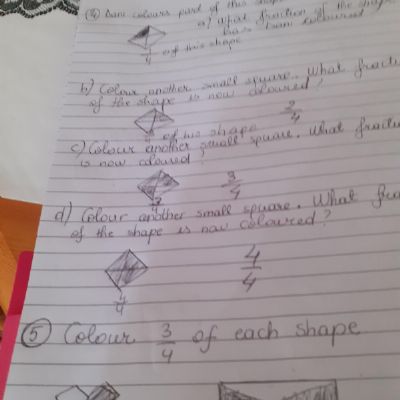 4) Dani colours part of this shape
a) What fraction of the shape
has Dani coloured
1/4 of this shape
b) Colour another small square. What fracti
of the shape is now coloured?
2/4
of his shape
c) Colour another small square. What fractio
is now coloured?
3/4
d) Colour another small square. What fra
of the shape is now coloured?
4/4
4/4
5 Colour 3/4 of each shape